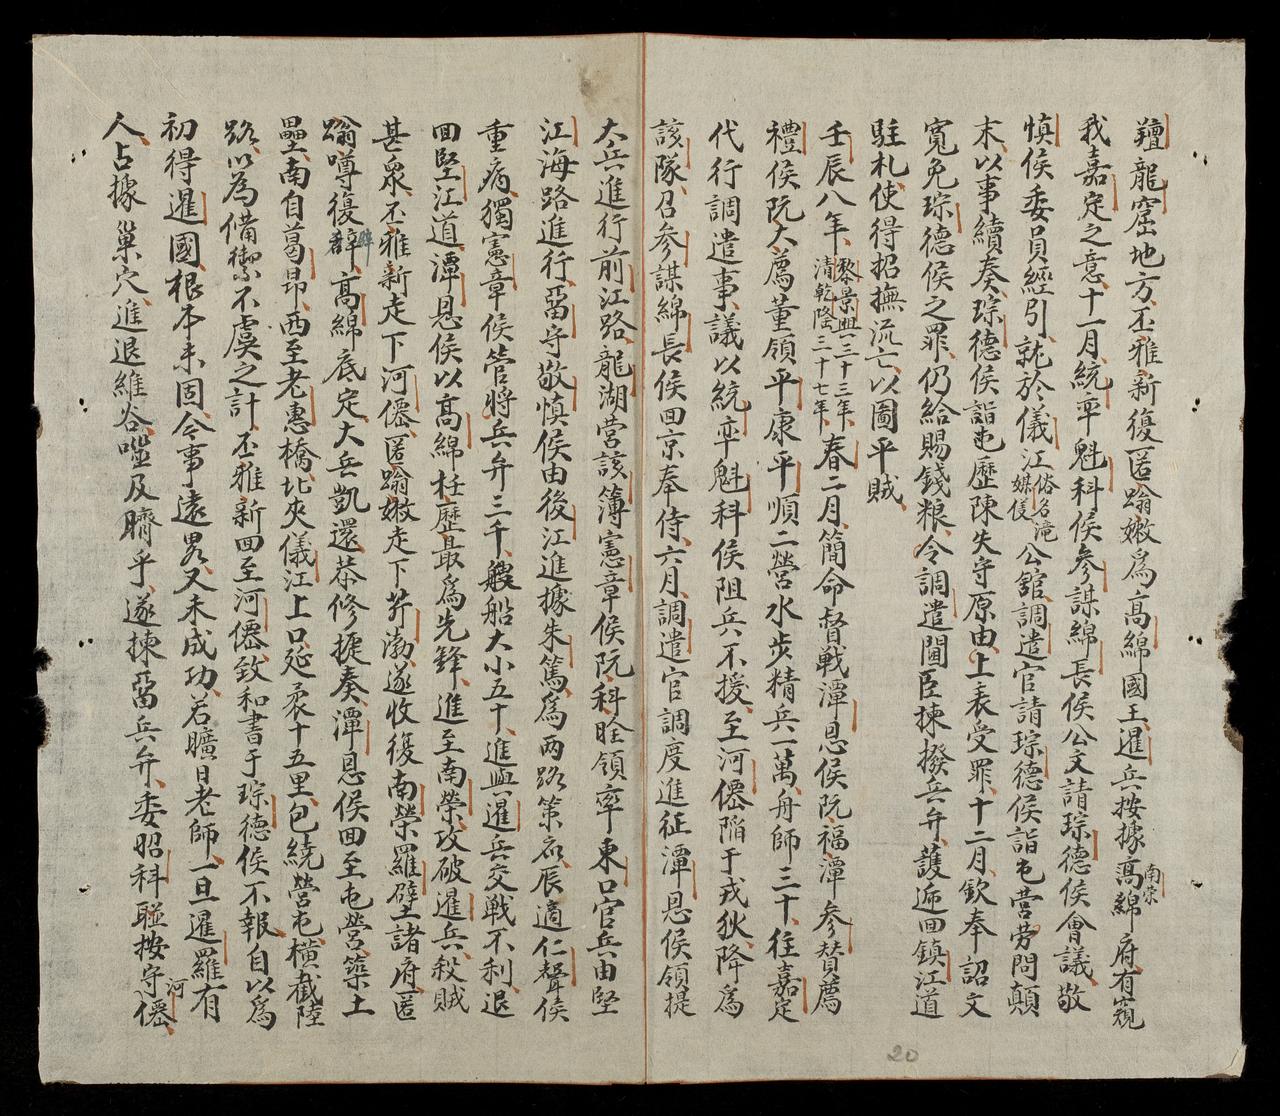 龍窟地方丕雅新復匿螉嫩爲高綿國王暹兵按據高綿南荣府有窺
我嘉定之意十一月統率魁科侯參謀綿長侯公文請琮德侯會議敬
慎侯委員經引就於儀江俗名滝媒㑴公舘調遣官請琮德侯詣屯營勞問顛
末以事續奏琮德侯詣屯歷陳失守原由上表受罪十二月欽奉詔文
寬免琮德侯之罪仍給賜錢粮令調遣閫臣揀撥兵弁護遞回鎮江道
駐札使得招撫流亡以圖平賊
壬辰八年黎景興三十三年清乾隆三十七年春二月簡命督戰潭恩侯阮福潭參贊薦
禮侯阮大薦董領平康平順二營水步精兵一萬舟師三十往嘉定
代行調遣事議以統率魁科侯阻兵不援至河僊陷于戎狄降爲
該隊召參謀綿長侯回京奉侍六月調遣官調度進征潭恩侯領提
大兵進行前江路龍湖營該簿憲章侯阮科詮領率東口官兵由堅
江海路進行畱守敬慎侯由後江進據朱篤爲兩路策應辰適仁聲侯
重病獨憲章侯管將兵弁三千艘船大小五十進與暹兵交戰不利退
回堅江道潭恩侯以高綿枉歷最爲先鋒進至南榮攻破暹兵殺賊
甚衆丕雅新走下河僊匿螉嫩走下芹渤遂收復南榮羅壁諸府匿
螉噂復辭高綿底定大兵凱還恭修捷奏潭恩侯回至屯營築土
壘南自葛昂西至老惠橋北夾儀江上口延袤十五里包繞營屯橫截陸
路以為備禦不虞之計丕雅新回至河僊致和書于琮德侯不報自以爲
初得暹國根本未固今事遠畧又未成功若曠日老師一旦暹羅有
人占據巢穴進退維谷噬及臍乎遂揀畱兵弁委昭科聯按守河僊
20